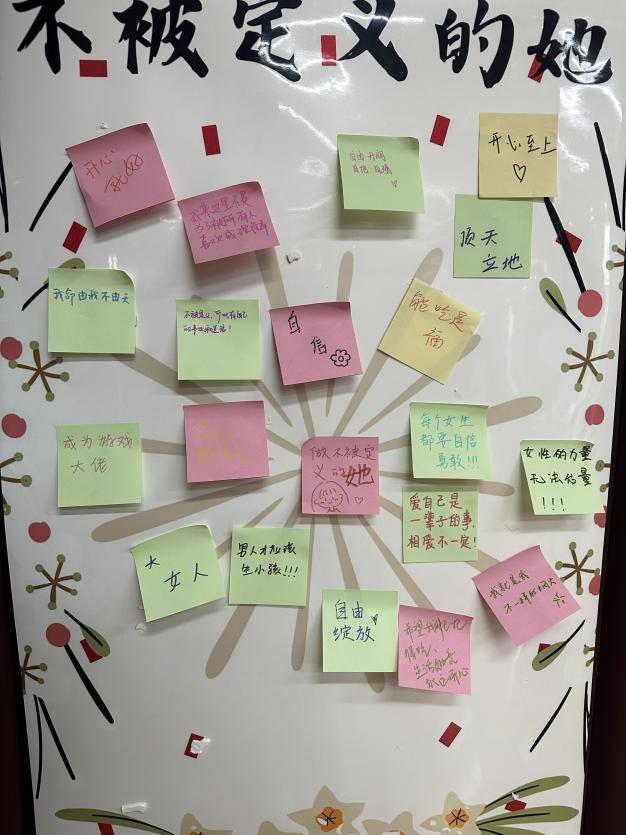 不被定义的她
开心
就好
自由 开朗
自信 自强
开心至上
我来这里不是
为了和所有人
顶天
立地
我命由我不由天
不被定义，可以有自己
自
信
能吃是
福
成为游戏
大佬
做不被定
义的她
每个女生
都要自信
勇敢!!!
女性的力量
无法估量
!!!
爱自己是
一辈子的事.
相爱不一定!
大
女人
男人才应该
生小孩!!!
自由
绽放
我就是我
不一样的烟火
希望我